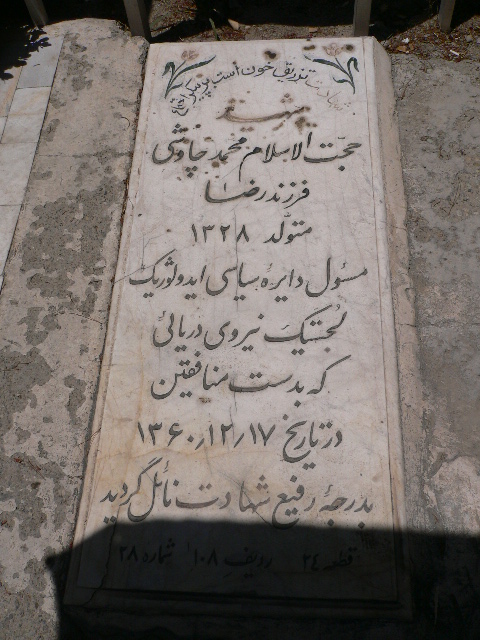 شهادت تزریق خون است بر پیکر
شهید
حجّت الاسلام محمد چاوشی
فرزند رضا
متولّد ۱۳۲۸
مسئول دایره سیاسی ایدولوژیک
لجستیک نیروی دریائی
که بدست منافقین
درتاریخ ۱۳۶۰/۱۲/۱۷
بدرجهٔ رفیع شهادت نائل گردید
قطعه ۲۴ ردیف ۱۰۸ شماره ۲۸